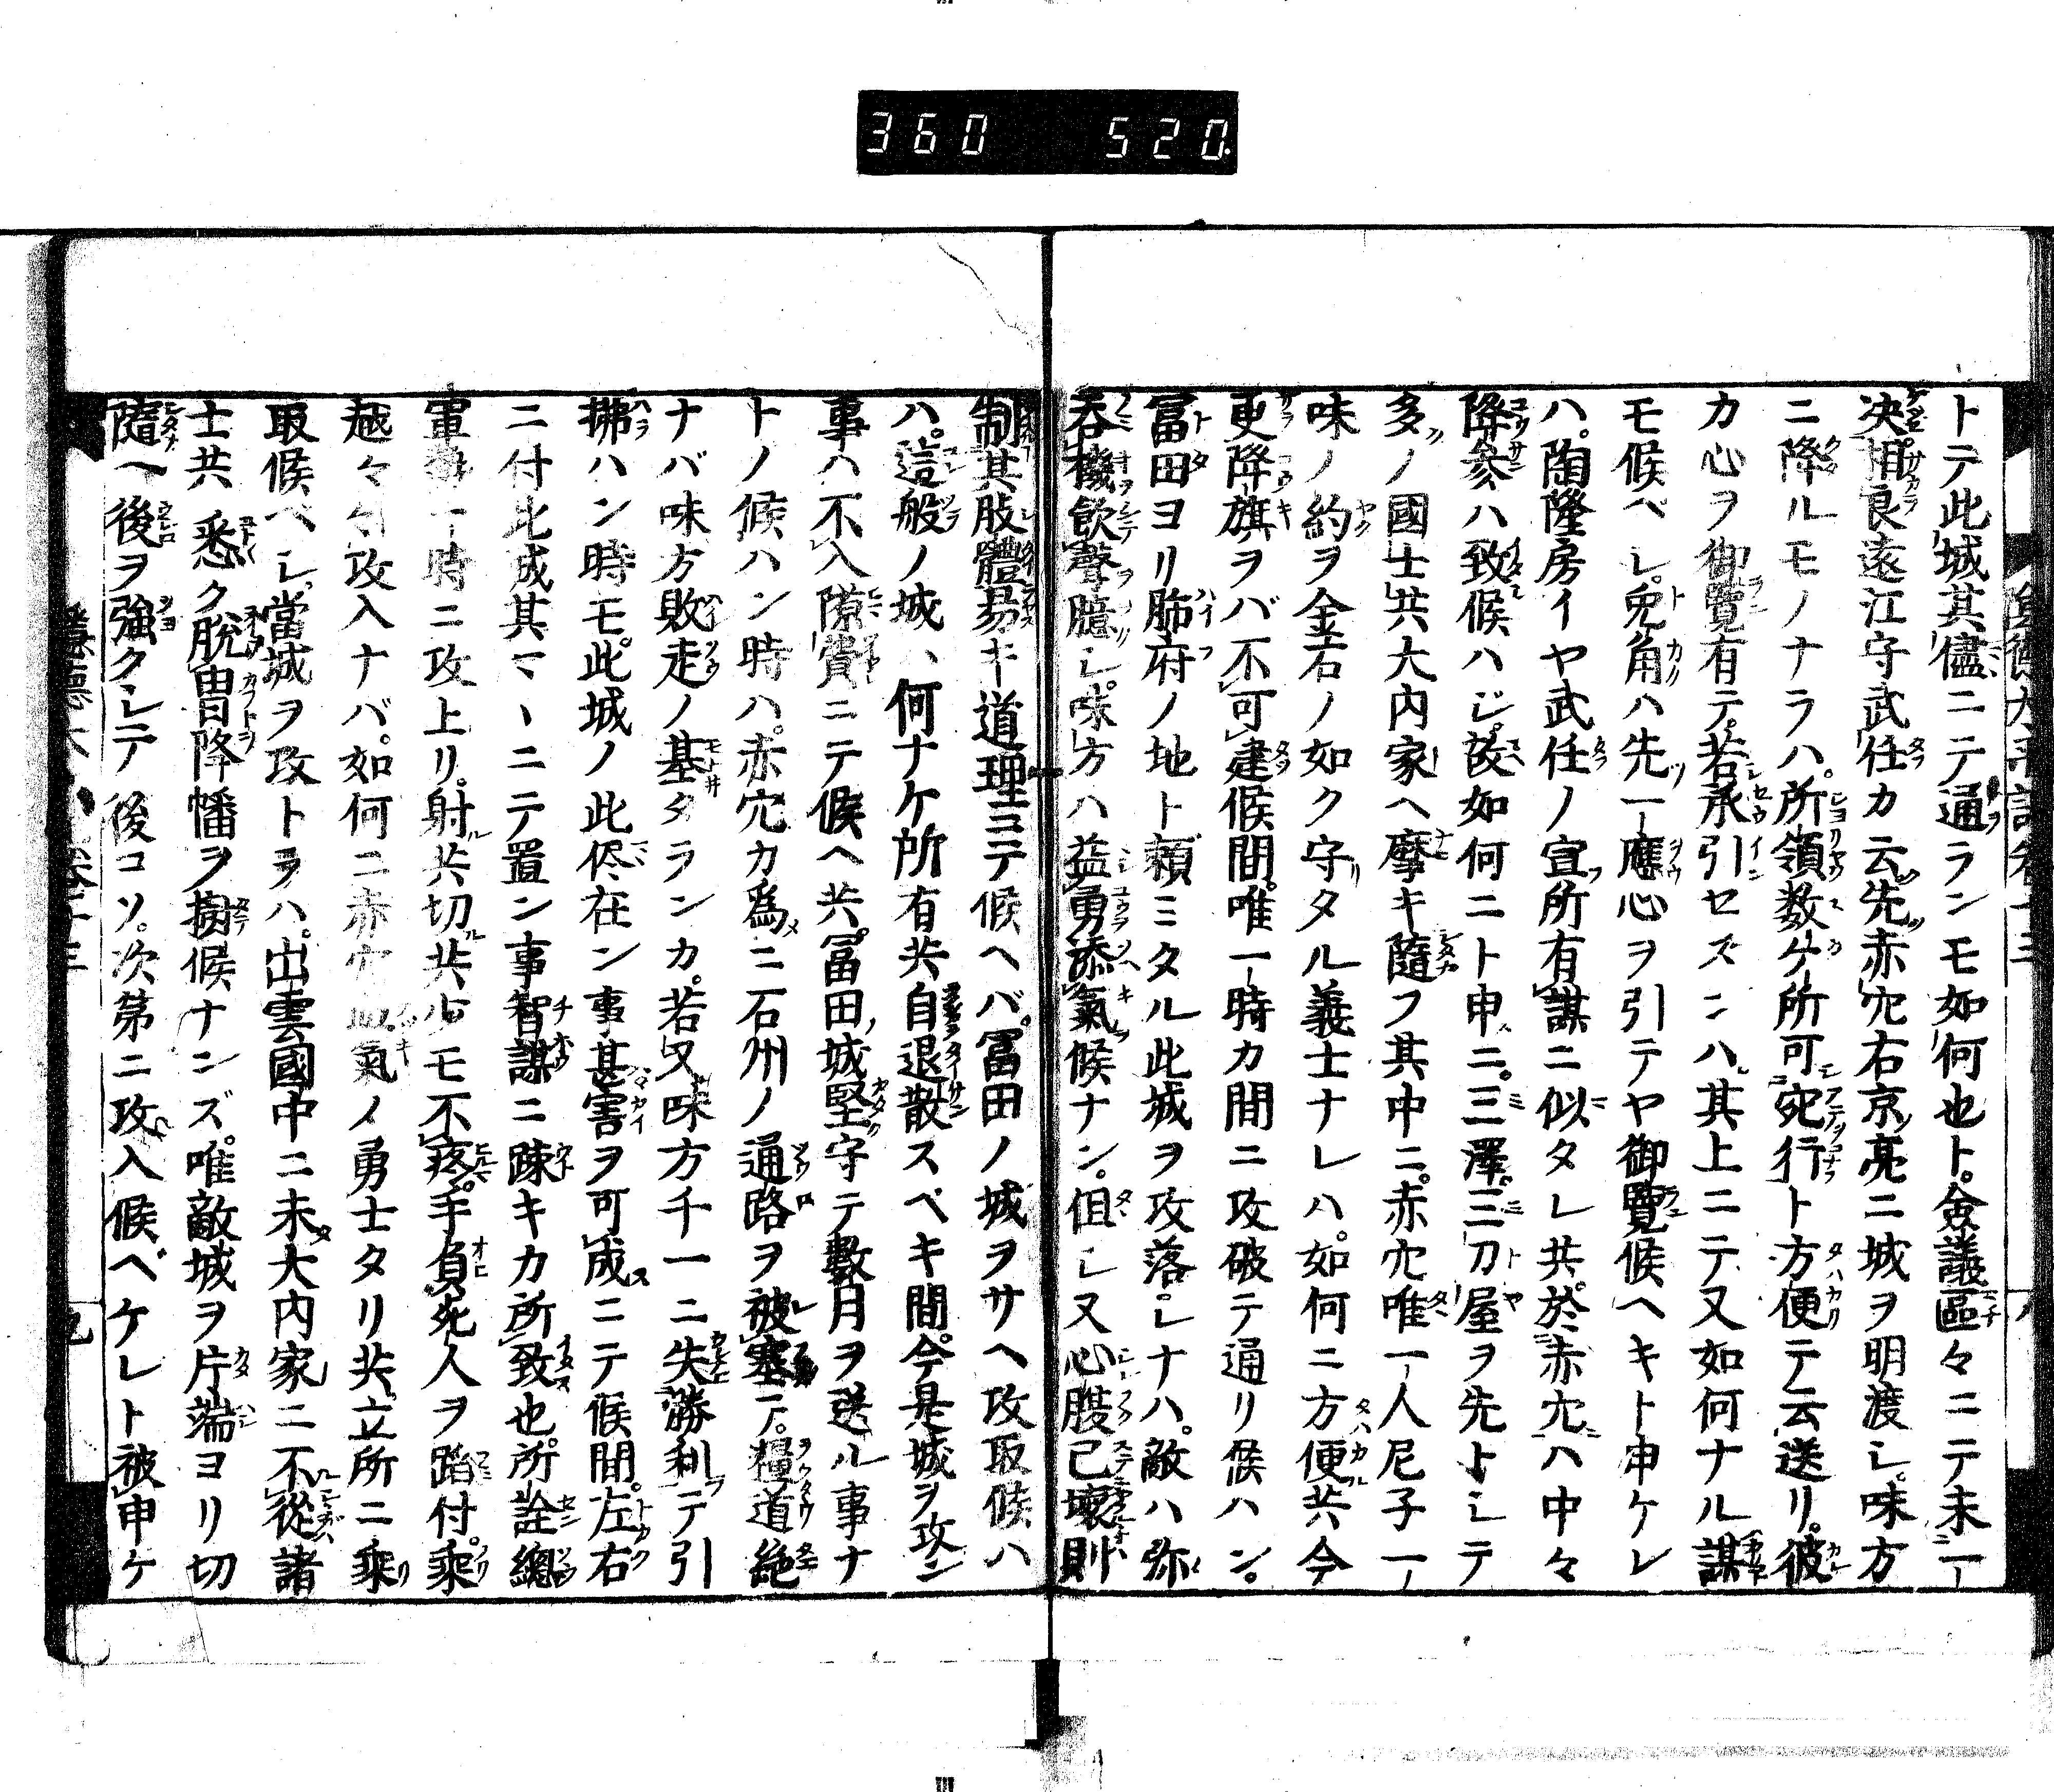 360 520.
トテ此城其儘ニテ通ランモ如何也ト。僉議區々ニテ未一
决。相良遠江守武任カ云。先赤穴右京亮ニ城ヲ明渡シ。味方
ニ降ルモノナラハ。所領数ケ所可宛行ト方便テ云送リ。彼
カ心ヲ御覽有テ。若承引セズンハ。其上ニテ又如何ナル謀
モ候ベシ。兎角ハ先一應心ヲ引テヤ御覽候ヘキト申ケレ
ハ。陶隆房イヤ武任ノ宣所有謀ニ似タレ共。於赤穴ハ中々
降參ハ致候ハジ。故如何ニト申ニ。三澤。三刀屋ヲ先トシテ
多ノ國士共大内家ヘ靡キ隨フ其中ニ。赤穴唯一人尼子一
味ノ約ヲ金石ノ如ク守タル義士ナレハ。如何ニ方便共今
更降旗ヲバ不可建候間。唯一時カ間ニ攻破テ通リ候ハン。
冨田ヨリ肺府ノ地ト頼ミタル此城ヲ攻落シナハ。敵ハ弥
呑機飲聲臆シ。味方ハ益勇添氣候ナン。但シ又心腹已壞則
制其肢體易キ道理ニテ候ヘバ。冨田ノ城ヲサヘ攻取候ハ
ハ。這般ノ城ハ何ナケ所有共自退散スベキ間。今是城ヲ攻ン
事ハ不入隙費ニテ候ヘ共。冨田ノ城堅守テ數月ヲ送ル事ナ
トノ候ハン時ハ。赤穴カ爲ニ石州ノ通路ヲ被塞テ。糧道絶
ナバ味方敗走ノ基タランカ。若又味方千一ニ失勝利テ引
拂ハン時モ。此城ノ此侭在ン事甚害ヲ可成ニテ候間。左右
ニ付此城其マヽニテ置ン事智謀ニ踈キカ所致也。所詮總
軍勢一時ニ攻上リ。射共切共少モ不疼。手負死人ヲ踏付。乘
越々々攻入ナバ。如何ニ赤穴血氣ノ勇士タリ共。立所ニ乘
取候ベシ。當城ヲ攻トラハ。出雲國中ニ未大内家ニ不從諸
士共悉ク脱冑降幡ヲ擁候ナンズ。唯敵城ヲ片端ヨリ切
隨ヘ後ヲ強クシテ後コソ。次第ニ攻入候ベケレト被申ケ